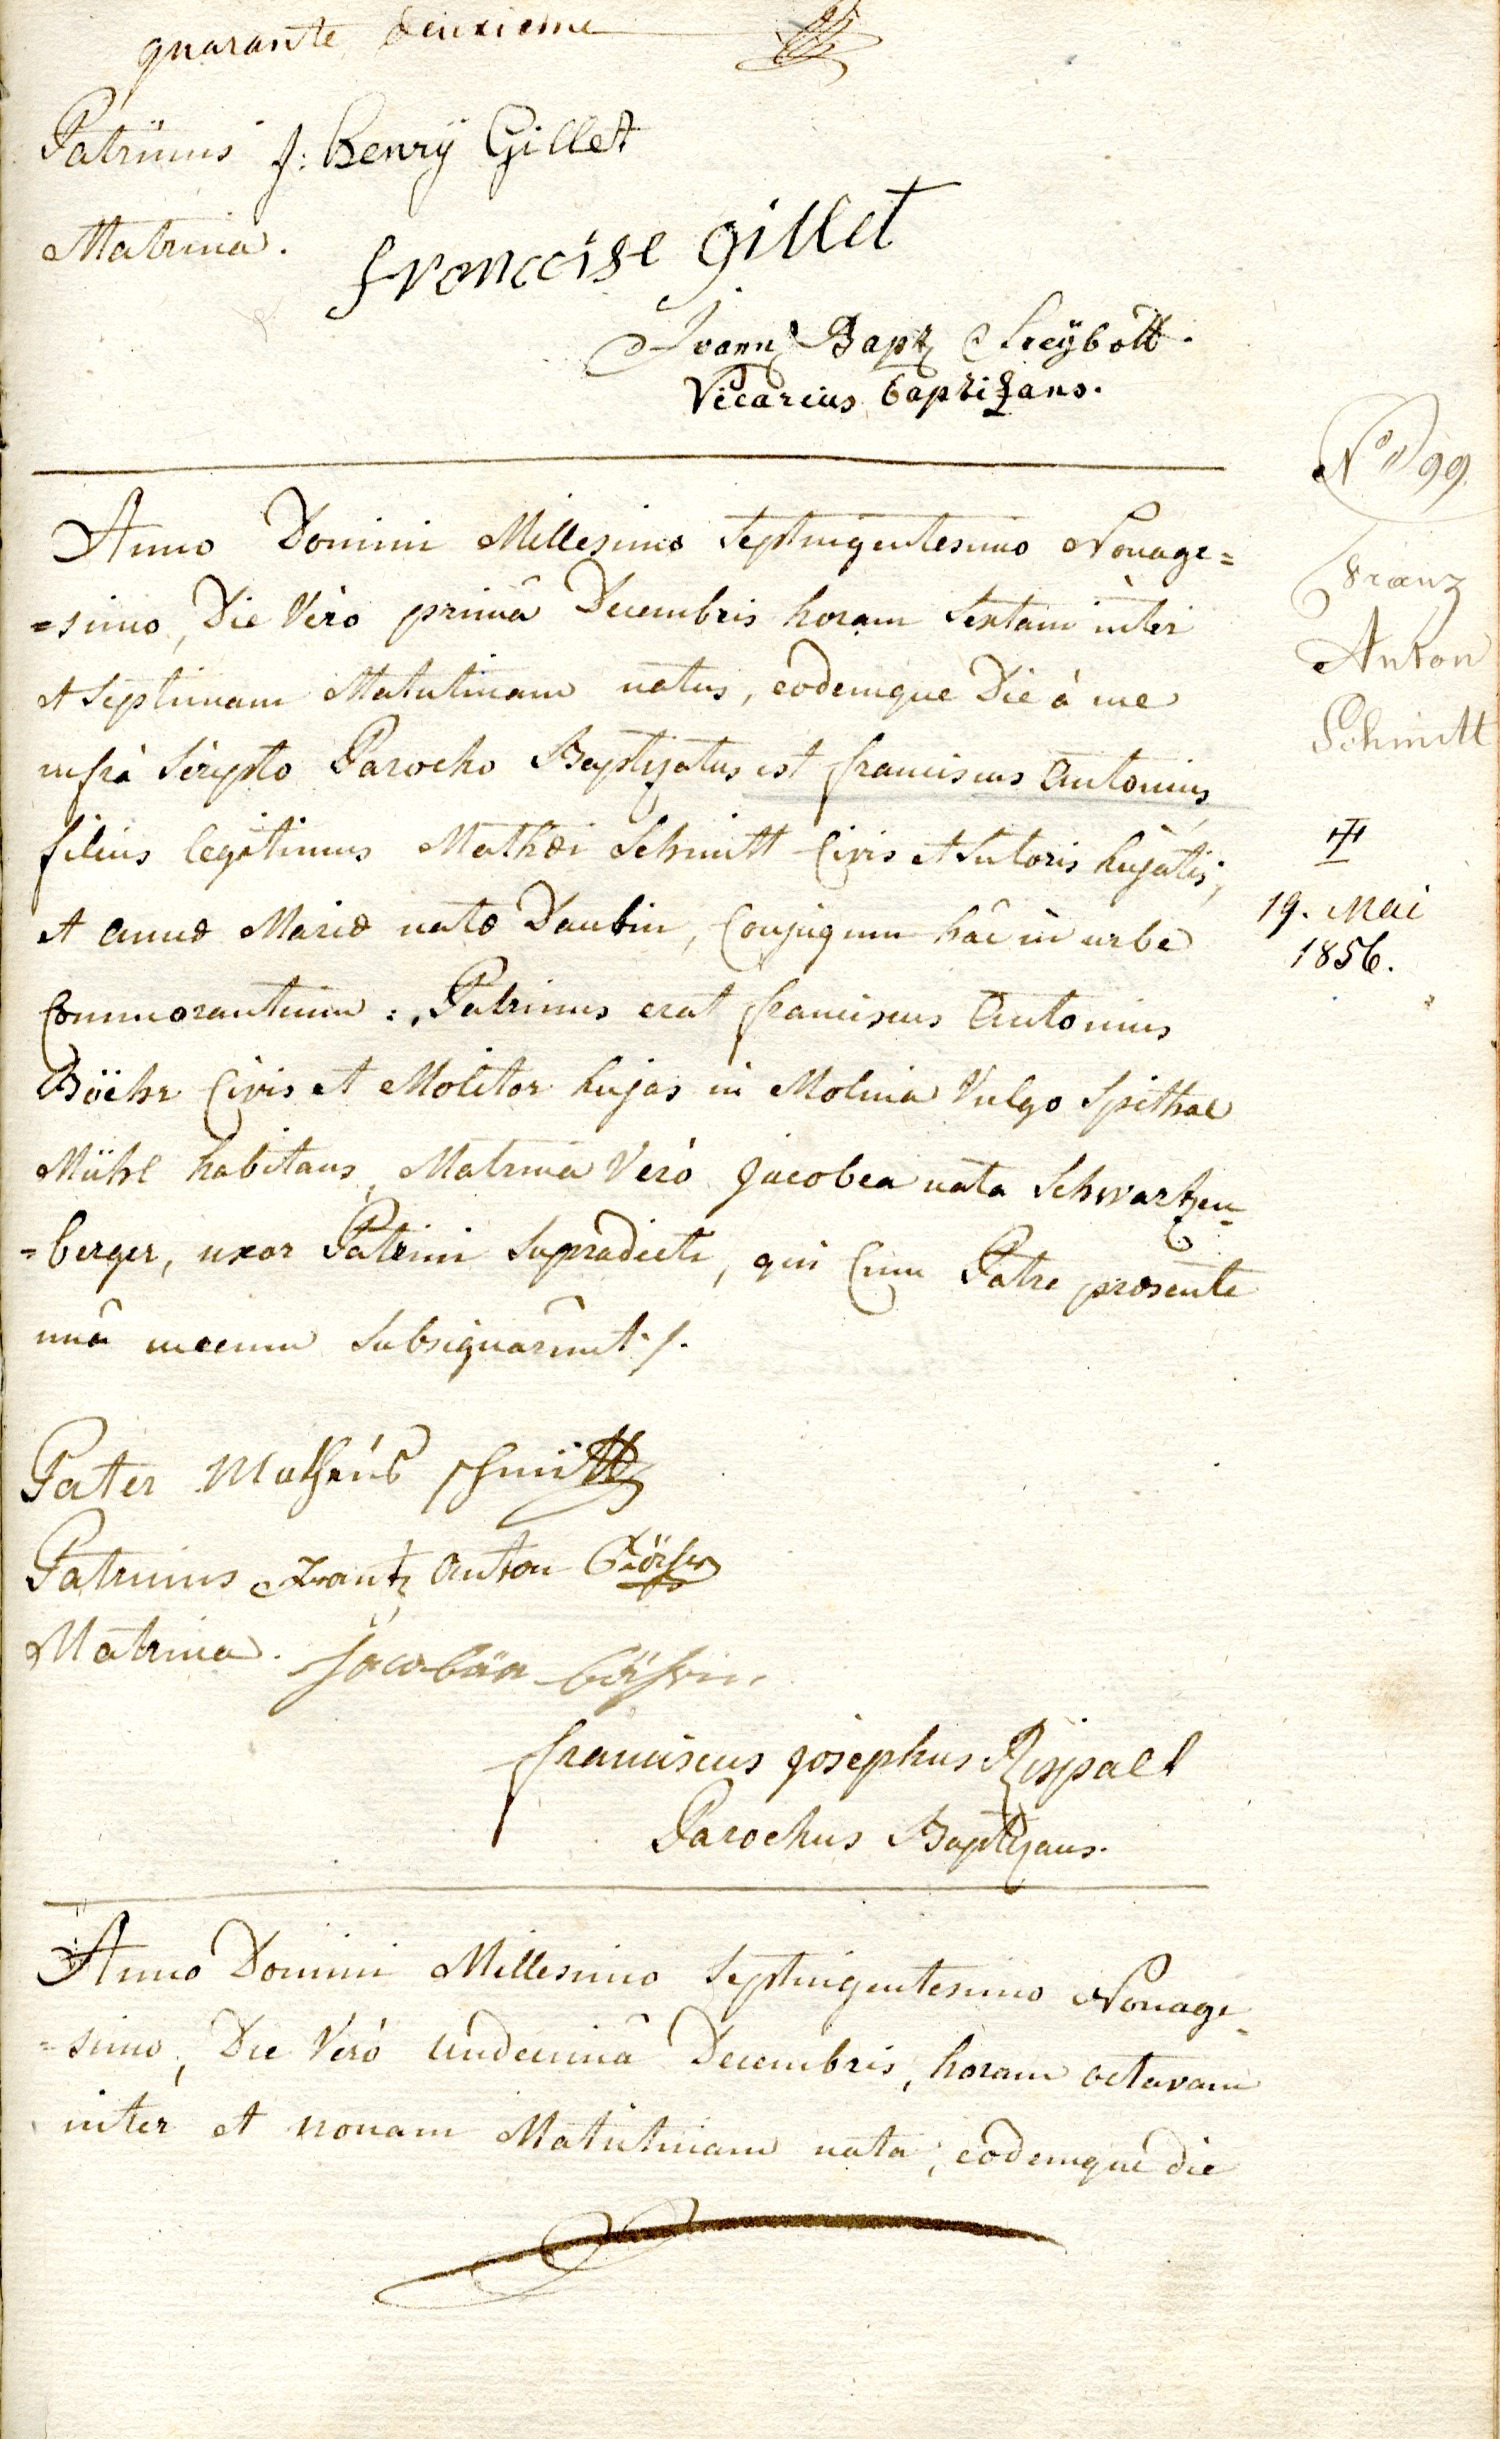 quarante deuxieme
Patrinus j: henrÿ Gillet
Matrina.
francoise gillet
Joann Bapt Sreÿbott.
Vicarius baptizans.
N° 99
Anno Domini Millesimo Septingentesimo Nonage=
=simo, Die Verò primâ Decembris horam Sextam inter
et Septimam Matutinam natus, eodemque Die à me
infrà Scripto Parocho Baptizatus est franciscus Antonius
filius legitimus Mathæi Schmitt Civis et Sutoris hujatis,
et annæ Mariæ natæ Daubin, Conjugum hâc in urbe
Commorantium: Patrinus erat franciscus Antonius
Böehr Civis et Molitor hujas in Molina Vulgo Spithal
Mühl habitans, Matrina Verò jacobea nata Schwartzen=
=berger, uxor Patrini Supradicti, qui Cum Patre præsente
unâ mecum Subsignarunt ·/·
Franz
Anton
Schmitt
19. Mai
1856.
Pater Matheus schmitt
Patrinus Frantz Anton Böhr
Matrina. Jacobäa Böhrin
franciscus josephus Rispall
Parochus Baptizans.
Anno Domini Millesimo Septingentesimo Nonage=
=simo, Die Verò Undecimâ Decembris, horam octavam
inter et nonam Matutinam nata, eodemque die